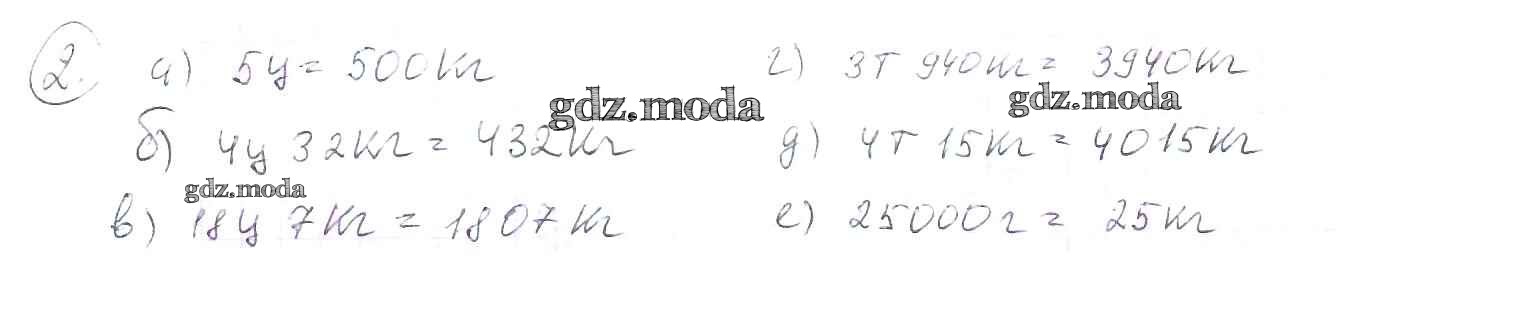 2. а) 5ц = 500кг г) 3т 940кг = 3940кг
gdz.moda gdz.moda
б) 4ц 32кг = 432кг д) 4т 15кг = 4015кг
gdz.moda
в) 18ц 7кг = 1807кг е) 25000г = 25кг